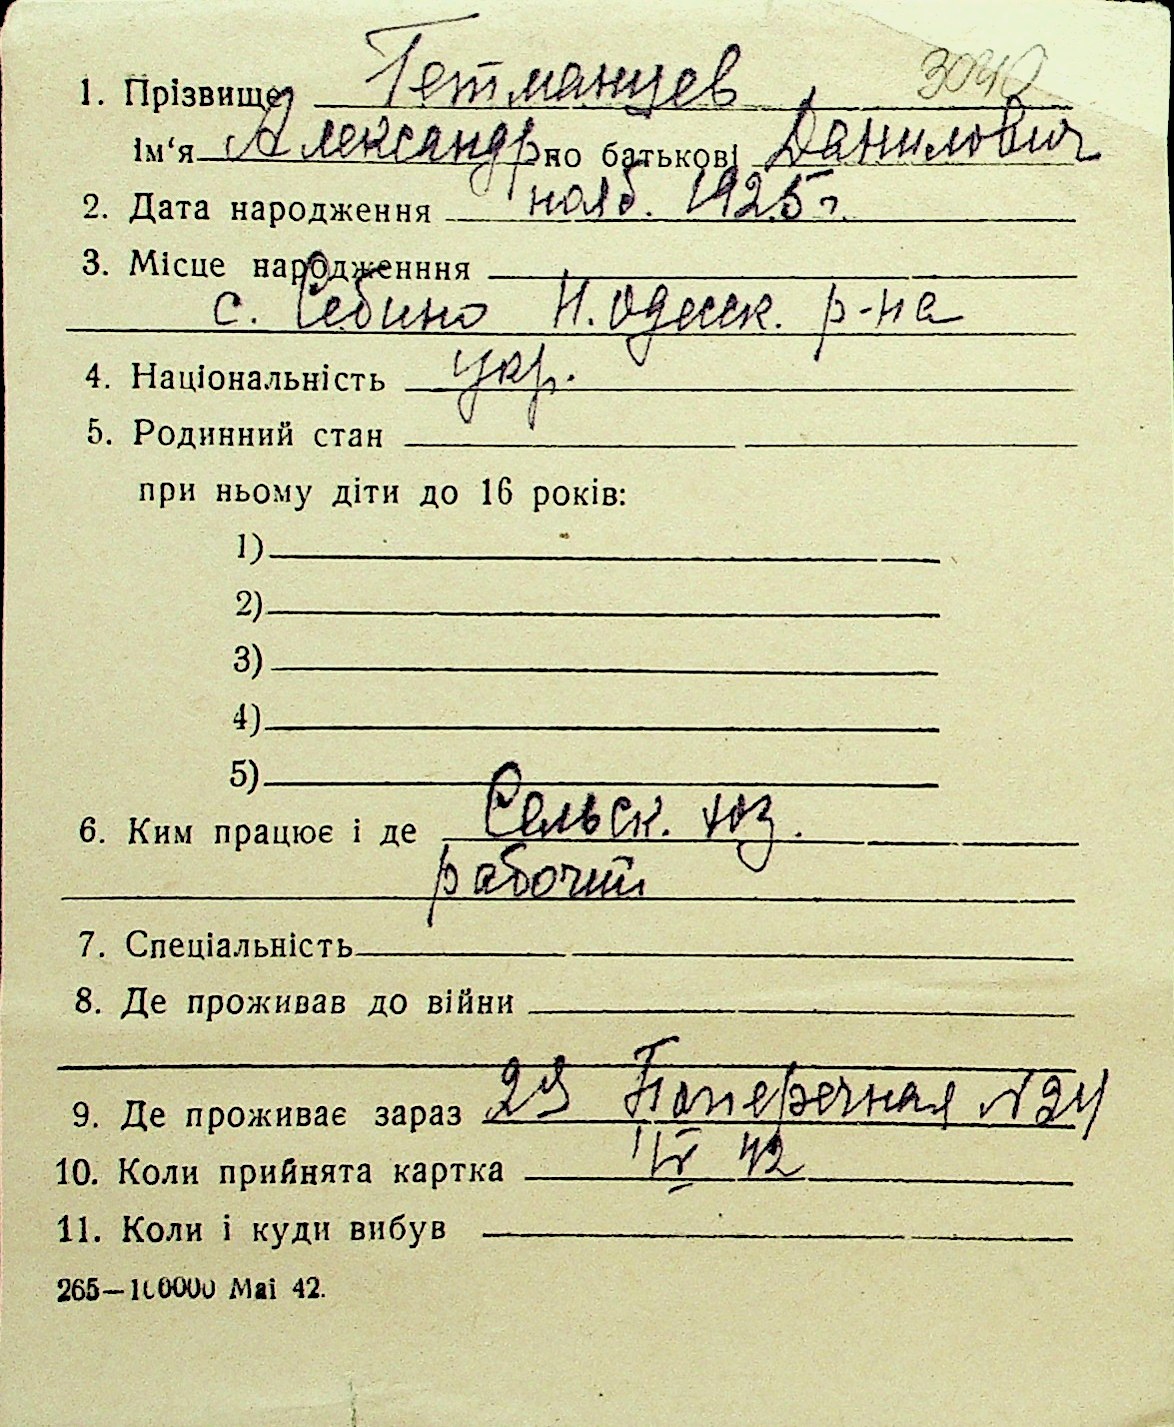 3040
1. Прізвище Гетманцев
ім'я Александр по батькові Данилович
2. Дата народження нояб. 1925 г.
3. Місце народженння
с. Себино Н. Одесск. р-на
4. Національність укр.
5. Родинний стан
при ньому діти до 16 років:
1)
2)
3)
4)
5)
6. Ким працює і де Сельск. хоз.
рабочий
7. Спеціальність
8. Де проживав до війни
9. Де проживає зараз Поперечная N
10. Коли прийнята картка 42
11. Коли і куди вибув
265—100000 Mai 42.